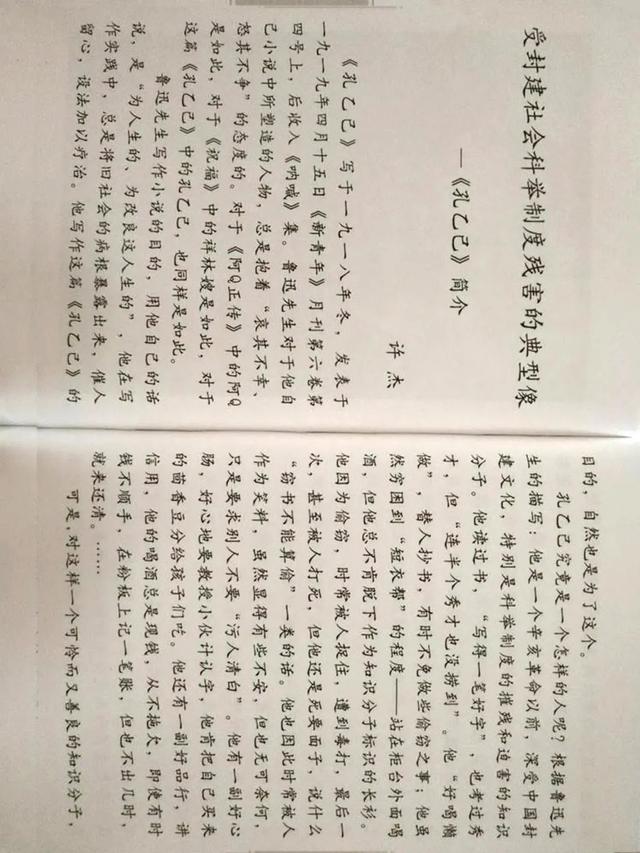 受封建社会科举制度残害的典型像
—《孔乙己》简介
许 杰
《孔乙己》写于一九一八年冬，发表于
一九一九年四月十五日《新青年》月刊第六卷第
四号上，后收入《呐喊》集。鲁迅先生对于他自
己小说中所塑造的人物，总是抱着“哀其不幸、
怒其不争”的态度的。对于《阿Q正传》中的阿Q
是如此，对于《祝福》中的祥林嫂是如此，对于
这篇《孔乙己》中的孔乙己，也同样是如此。
鲁迅先生写作小说的目的，用他自己的话
说，是“为人生的、为改良这人生的”，他在写
作实践中，总是将旧社会的病根暴露出来，催人
留心，设法加以疗治。他写作这篇《孔乙己》的
目的，自然也是为了这个。
孔乙己究竟是一个怎样的人呢？根据鲁迅先
生的描写：他是一个辛亥革命以前，深受中国封
建文化，特别是科举制度的摧残和迫害的知识
分子。他读过书，“写得一笔好字”，也考过秀
才，但“连半个秀才也没捞到”。他“好喝懒
做”，替人抄书，有时不免做些偷窃之事；他虽
然穷困到“短衣帮”的程度——站在柜台外面喝
酒，但他总不肯脱下作为知识分子标识的长衫。
他因为偷窃，时常被人捉住，遭到毒打，最后一
次，甚至被人打死，但他还是死要面子，说什么
“窃书不能算偷”一类的话。他也因此时常被人
作为笑料，虽然显得有些不安，但也无可奈何，
只是要求别人不要“污人清白”。他有一副好心
肠，好心地要教授小伙计认字，他肯把自己买来
的茴香豆分给孩子们吃。他还有一副好品行，讲
信用，他的喝酒总是现钱，从不拖欠，即使有时
钱不顺手，在粉板上记一笔账，但也不出几时，
就来还清。……
可是，对这样一个可怜而又善良的知识分子，